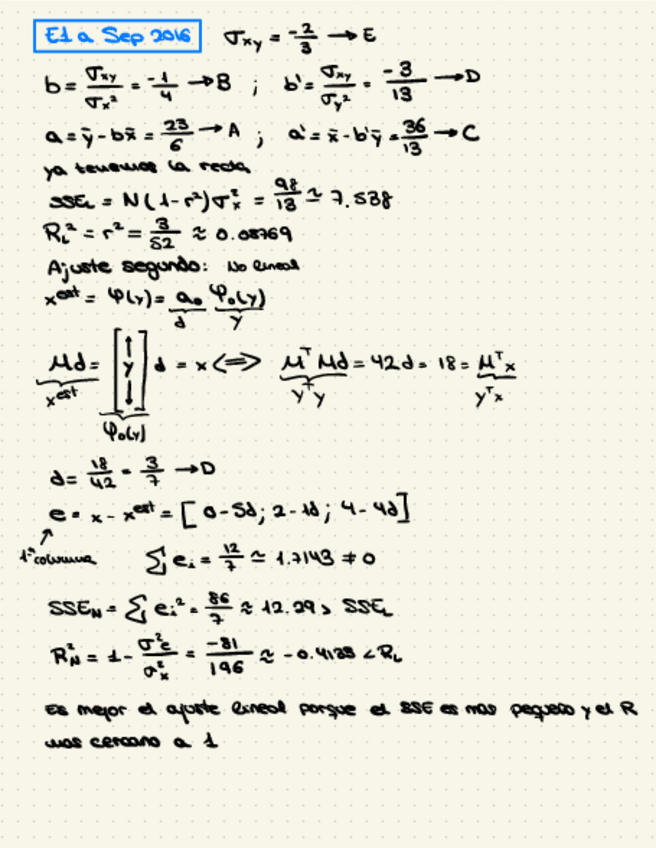 E1 a Sep 2016 σxy = -2/3 → E
b = σxy/σx² = -1/4 → B ; b' = σxy/σy² = -3/13 → D
a = ȳ - bx̄ = 23/6 → A ; a' = x̄ - b'ȳ = 36/13 → C
ya tenemos la recta
SSE_L = N(1-r²)σx² = 98/13 ≃ 7.538
R_L² = r² = 3/52 ≈ 0.05769
Ajuste segundo: No lineal
x^est = φ(y) = a₀ φ₀(y)
d y
Md = [↑ y ↓] d = x ⟺ MᵀMd = 42d = 18 = Mᵀx
x^est yᵀy yᵀx
φ₀(y)
d = 18/42 = 3/7 → D
e = x - x^est = [0-5d; 2-1d; 4-4d]
1ª columna ∑ eᵢ = 12/7 ≃ 1.7143 ≠ 0
SSE_N = ∑ eᵢ² = 86/7 ≈ 12.29 > SSE_L
R_N² = 1 - σ²e/σ²x = -81/196 ≈ -0.4133 < R_L
Es mejor el ajuste lineal porque el SSE es mas pequeño y el R
mas cercano a 1